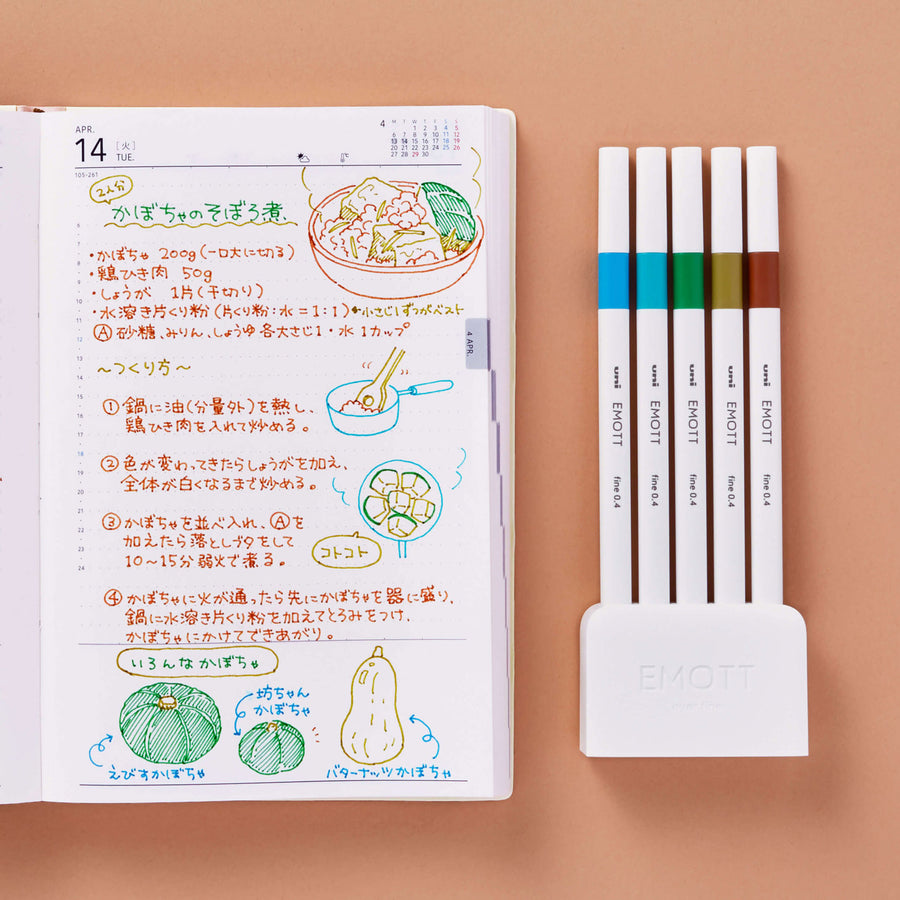 APR.
14 [火] TUE.
105-261
4 M T W T F S S
1 2 3 4 5
6 7 8 9 10 11 12
13 14 15 16 17 18 19
20 21 22 23 24 25 26
27 28 29 30
2人分
かぼちゃのそぼろ煮
・かぼちゃ 200g(一口大に切る)
・鶏ひき肉 50g
・しょうが 1片(千切り)
・水溶き片くり粉(片くり粉:水=1:1)←小さじ1ずつがベスト
Ⓐ砂糖、みりん、しょうゆ 各大さじ1・水 1カップ
4 APR.
〜つくり方〜
①鍋に油(分量外)を熱し、
鶏ひき肉を入れて炒める。
②色が変わってきたらしょうがを加え、
全体が白くなるまで炒める。
③かぼちゃを並べ入れ、Ⓐを
加えたら落としブタをして
10〜15分弱火で煮る。
コトコト
④かぼちゃに火が通ったら先にかぼちゃを器に盛り、
鍋に水溶き片くり粉を加えてとろみをつけ、
かぼちゃにかけてできあがり。
6
7
8
9
10
11
12
13
14
15
16
17
18
19
20
21
22
23
24
いろんなかぼちゃ
坊ちゃん
かぼちゃ
えびすかぼちゃ
バターナッツかぼちゃ
uni EMOTT fine 0.4
uni EMOTT fine 0.4
uni EMOTT fine 0.4
uni EMOTT fine 0.4
uni EMOTT fine 0.4
EMOTT
ever fine